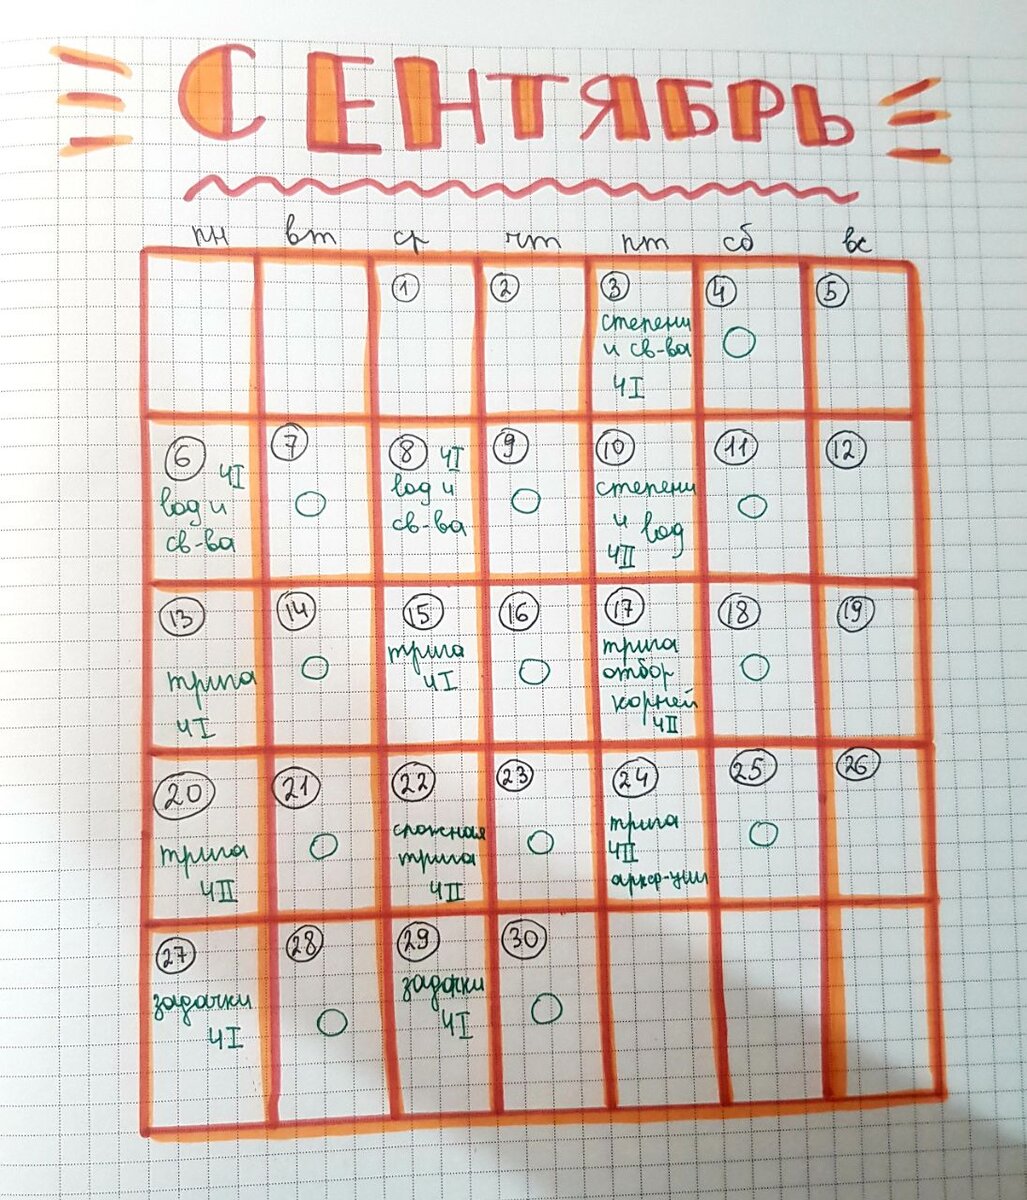 СЕНТЯБРЬ
пн вт ср чт пт сб вс
1 2 3 4 5
степени
и св-ва
ЧI
6 ЧI
7
8 ЧI
9 10 11 12
log и
св-ва
log и
св-ва
степени
и log
ЧII
13 14 15 16 17 18 19
трига
ЧI
трига
ЧI
трига
отбор
корней
ЧII
20 21 22 23 24 25 26
трига
ЧII
сложная
трига
ЧII
трига
ЧII
аркф-ции
27 28 29 30
задачки
ЧI
задачки
ЧI